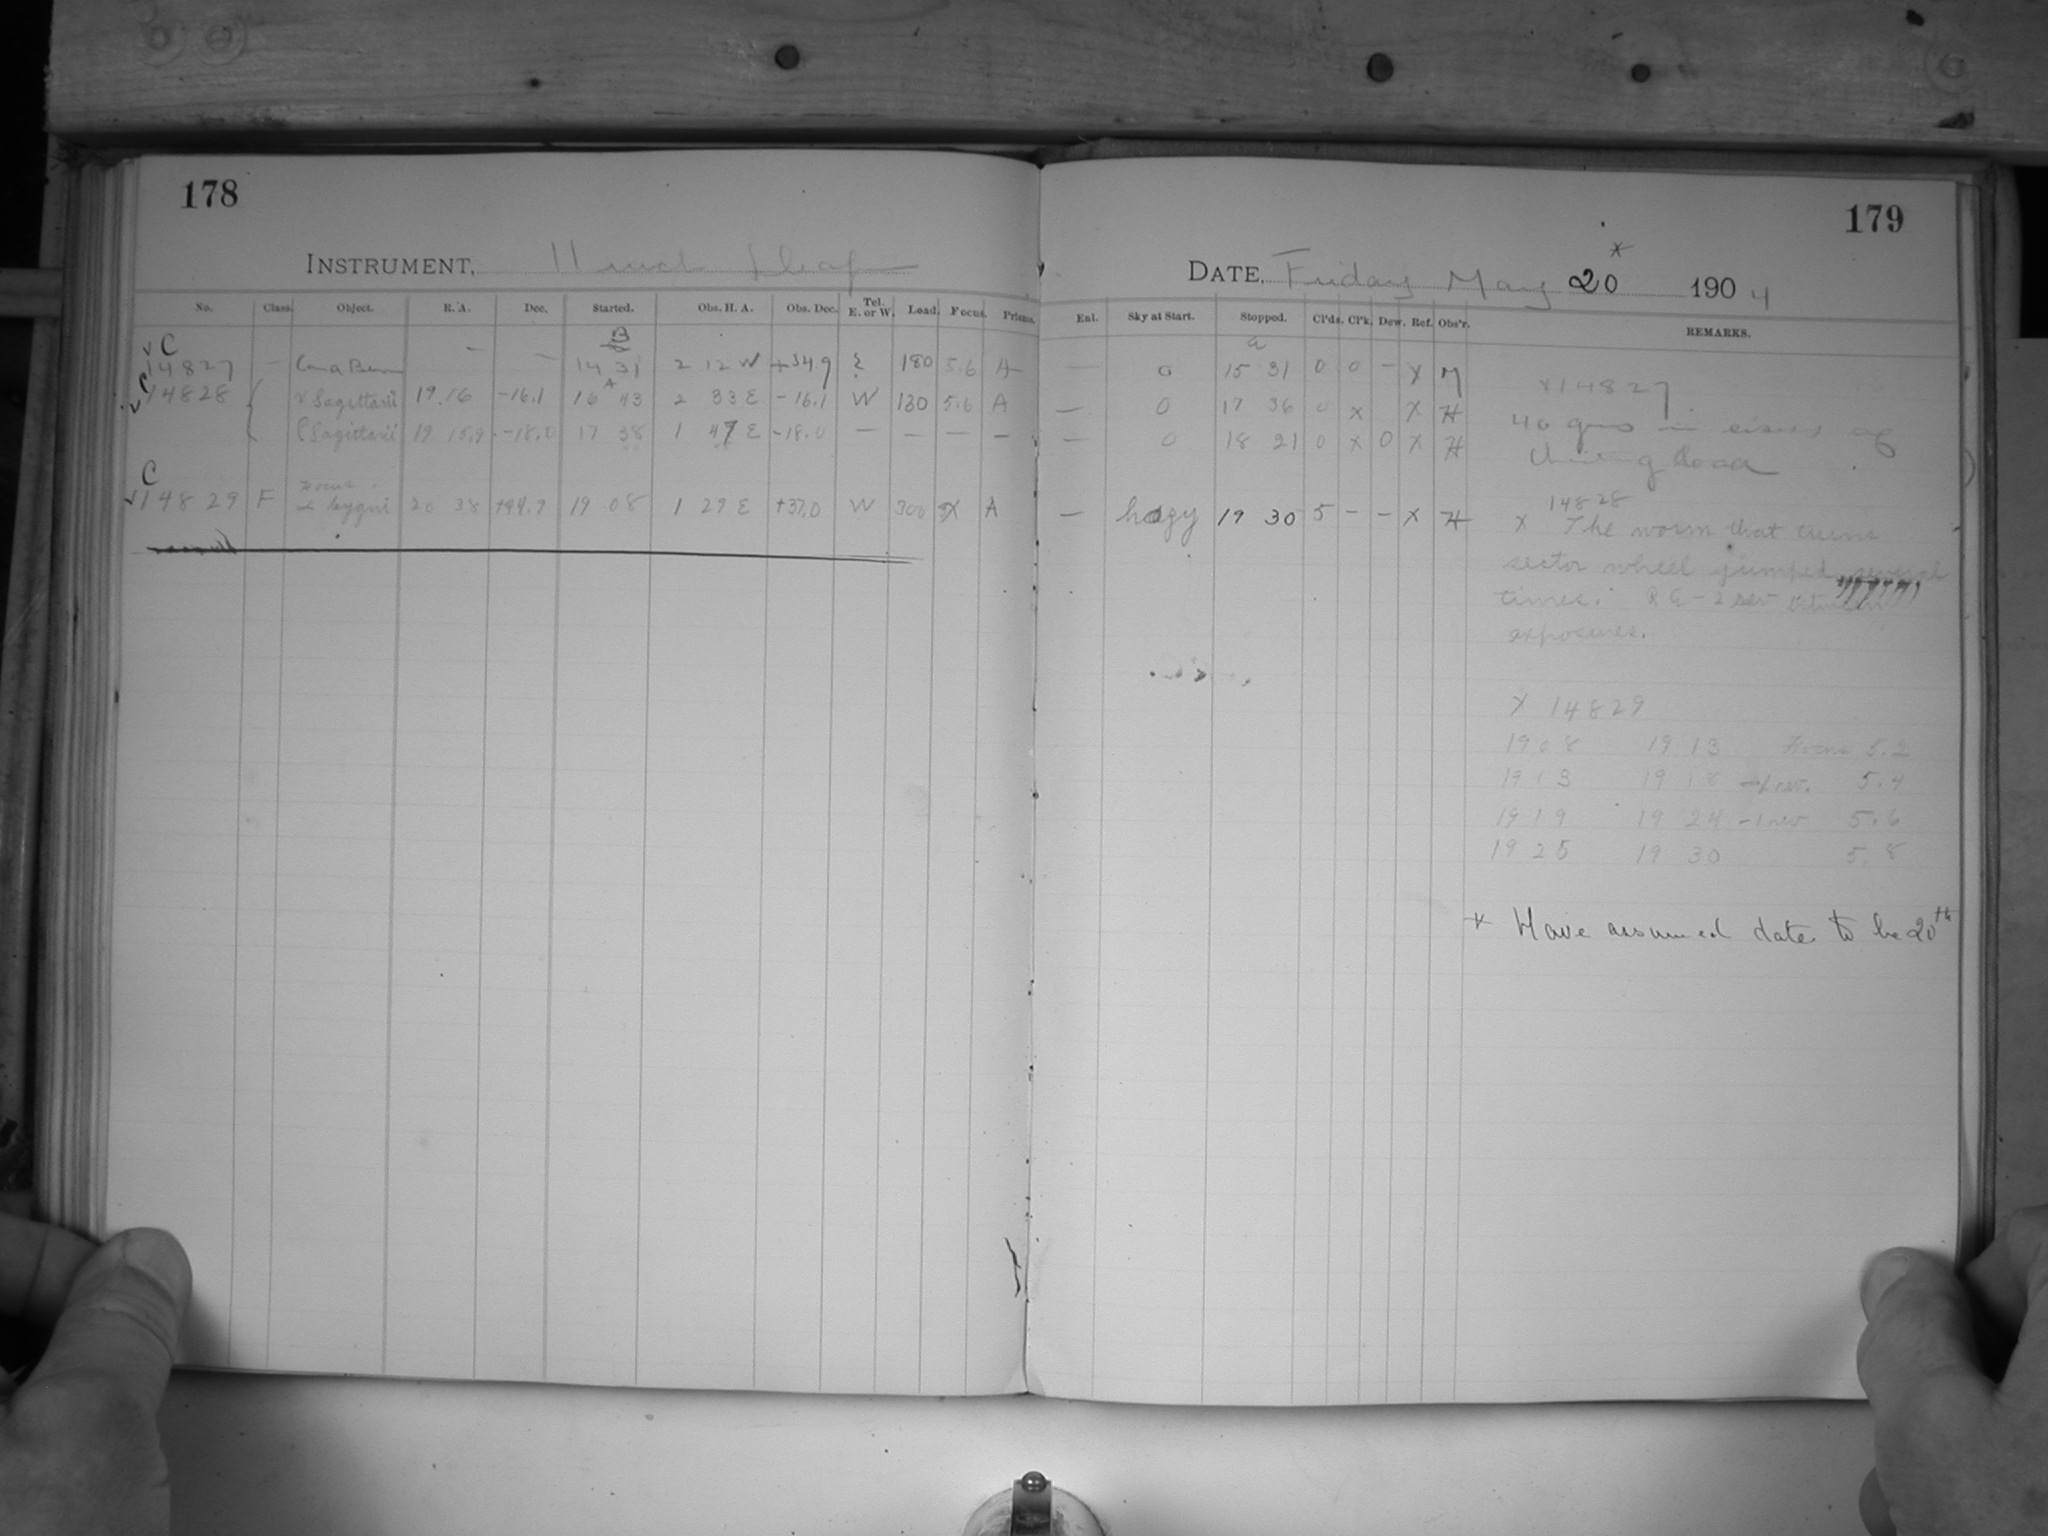 178
INSTRUMENT, 11 inch
No. Class. Object. R. A. Dec. Started. Obs. H. A. Obs. Dec. Tel. E. or W. Load. Focus. Prisms.
C
14827 — — — 14 31 2 12 W +34.9 E 180 5.6 A
C
14828 ν Sagittarii 19.16 -16.1 16 43 2 33 E -16.1 W 130 5.6 A
ρ Sagittarii 19 15.9 -18.0 17 38 1 47 E -18.0 — — — —
C
Focus
14829 F α Cygni 20 38 +44.9 19 08 1 29 E +37.0 W 300 X A
179
DATE, Friday May 20 * 1904
Enl. Sky at Start. Stopped. Cl'ds. Cl'k. Dew. Ref. Obs'r. REMARKS.
— 0 15 31 0 0 — X M
— 0 17 36 0 X X H
— 0 18 21 0 X 0 X H
— hazy 19 30 5 — — X H
x 14827
40 gms in excess of
driving load
14828
x The worm that turns
sector wheel jumped several
times. R A - 2 rev between
exposures.
X 14829
19 08 19 13 Focus 5.2
19 13 19 18 -1 rev. 5.4
19 19 19 24 -1 rev 5.6
19 25 19 30 5.8
* Have assumed date to be 20th